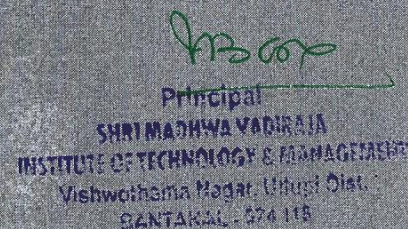 Principal
SHRI MADHWA VADIRAJA
INSTITUTE OF TECHNOLOGY & MANAGEMENT
Vishwothama Nagar, Udupi Dist.
BANTAKAL - 574 115